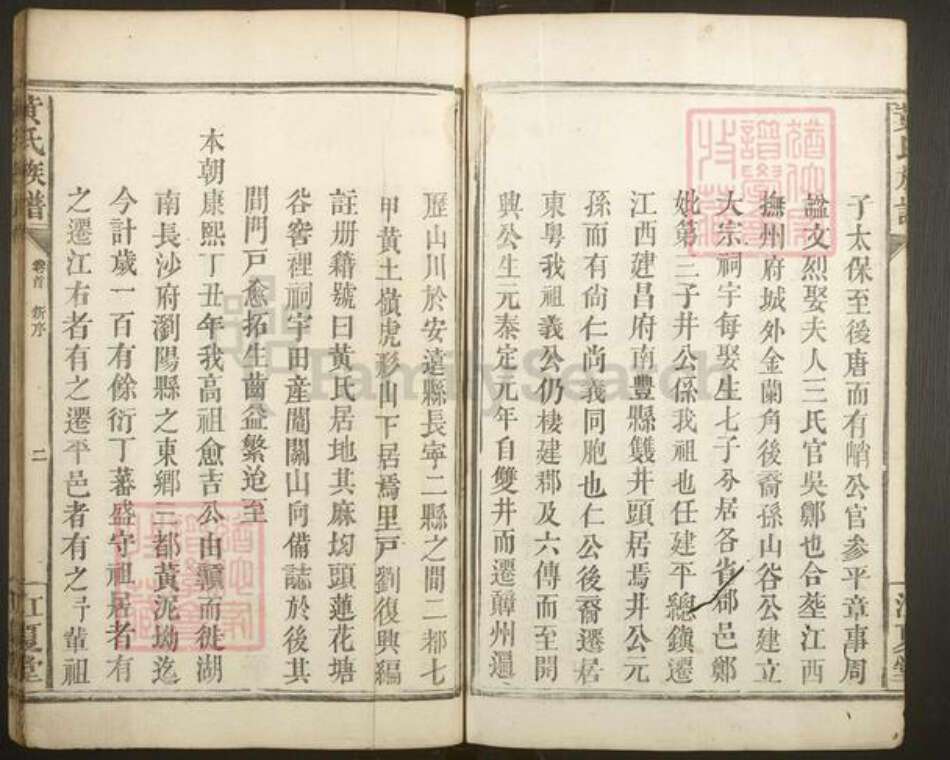 子太保至後唐而有峭公官參平章事周
諡文烈娶夫人三氏官吳鄭也合塟江西
撫州府城外金蘭角後裔孫山谷公建立
大宗祠宇每娶生七子分居各省郡邑鄭
妣第三子井公係我祖也任建平總鎮遷
江西建昌府南豐縣雙井頭居焉井公元
孫而有尙仁尚義同胞也仁公後裔遷居
東粤我祖義公仍棲建郡及六傳而至開
興公生元泰定元年自雙井而遷贛州遍
歷山川於安遠縣長寧二縣之間二都七
甲黄土嶺虎形山下居焉里戸劉復興編
註册籍號曰黃氏居地其麻塲頭蓮花塘
谷窖裡祠宇田產闔關山向備誌於後其
間門戸愈拓生齒益繁迨至
本朝康熙丁丑年我高祖愈吉公由贛而徙湖
南長沙府瀏陽縣之東鄉三都黃泥坳迄
今計歲一百有餘衍丁蕃盛守祖居者有
之遷江右者有之遷平邑者有之予輩祖
黃氏族譜
卷首
新序
二
江夏堂
FamilySearch